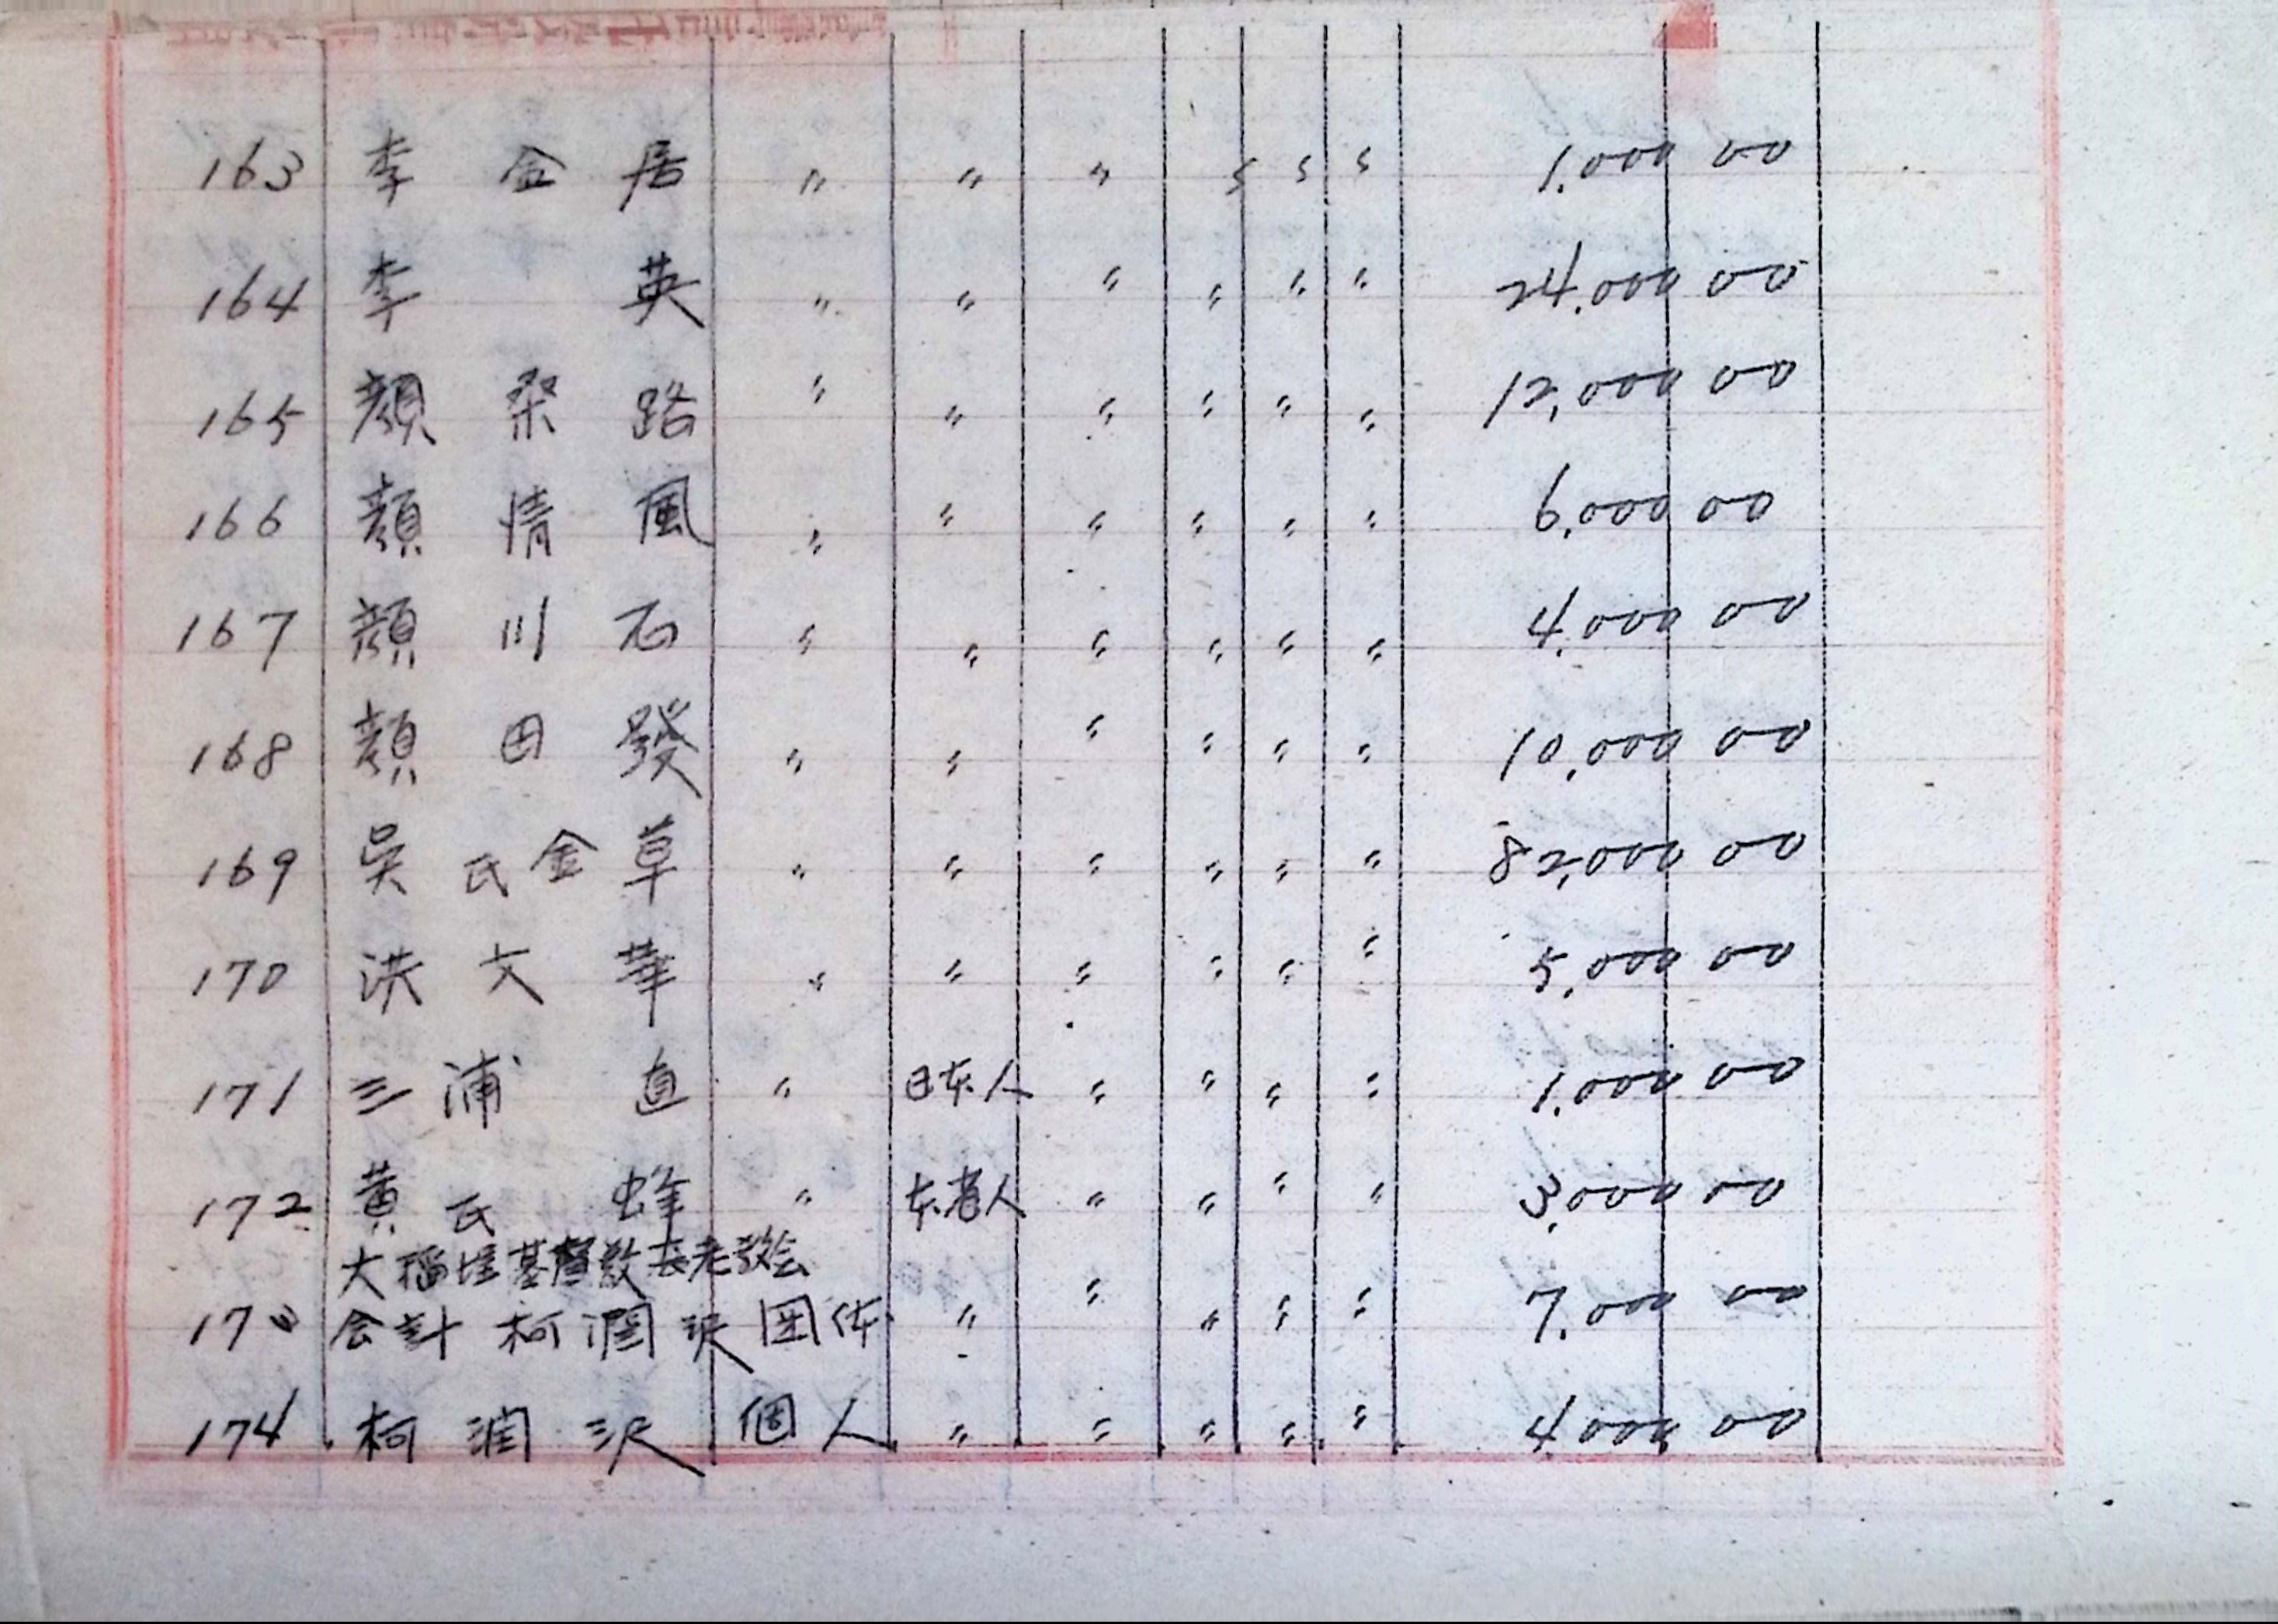 163 李金居 〃 〃 〃 5 5 5 1,000 00
164 李英 〃 〃 〃 〃 〃 〃 24,000 00
165 顏路 〃 〃 〃 〃 〃 〃 12,000 00
166 顏情風 〃 〃 〃 〃 〃 〃 6,000 00
167 顏川石 〃 〃 〃 〃 〃 〃 4,000 00
168 顏田發 〃 〃 〃 〃 〃 〃 10,000 00
169 吳氏金草 〃 〃 〃 〃 〃 〃 82,000 00
170 洪文華 〃 〃 〃 〃 〃 〃 5,000 00
171 三浦直 〃 日本人 〃 〃 〃 〃 1,000 00
172 黄氏蜂 〃 本省人 〃 〃 〃 〃 3,000 00
大稻埕基督教長老教会
173 会計 柯潤沢 团体 〃 〃 〃 〃 〃 7,000 00
174 柯潤沢 個人 〃 〃 〃 〃 〃 4,000 00